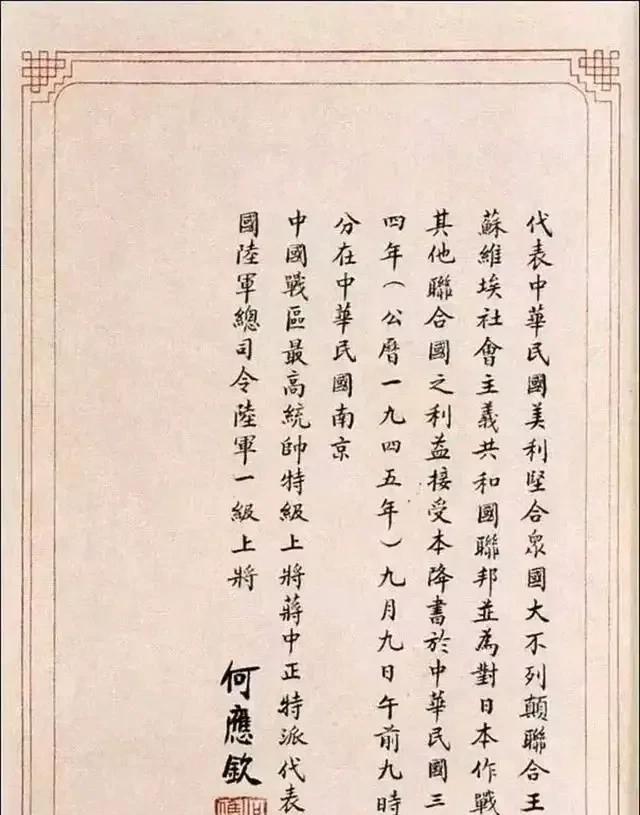 代表中華民國美利堅合衆國大不列顛聯合王
蘇維埃社會主義共和國聯邦並為對日本作戰
其他聯合國之利益接受本降書於中華民國三
四年(公曆一九四五年)九月九日午前九時
分在中華民國南京
中國戰區最高統帥特級上將蔣中正特派代表
國陸軍總司令陸軍一級上將
何應欽